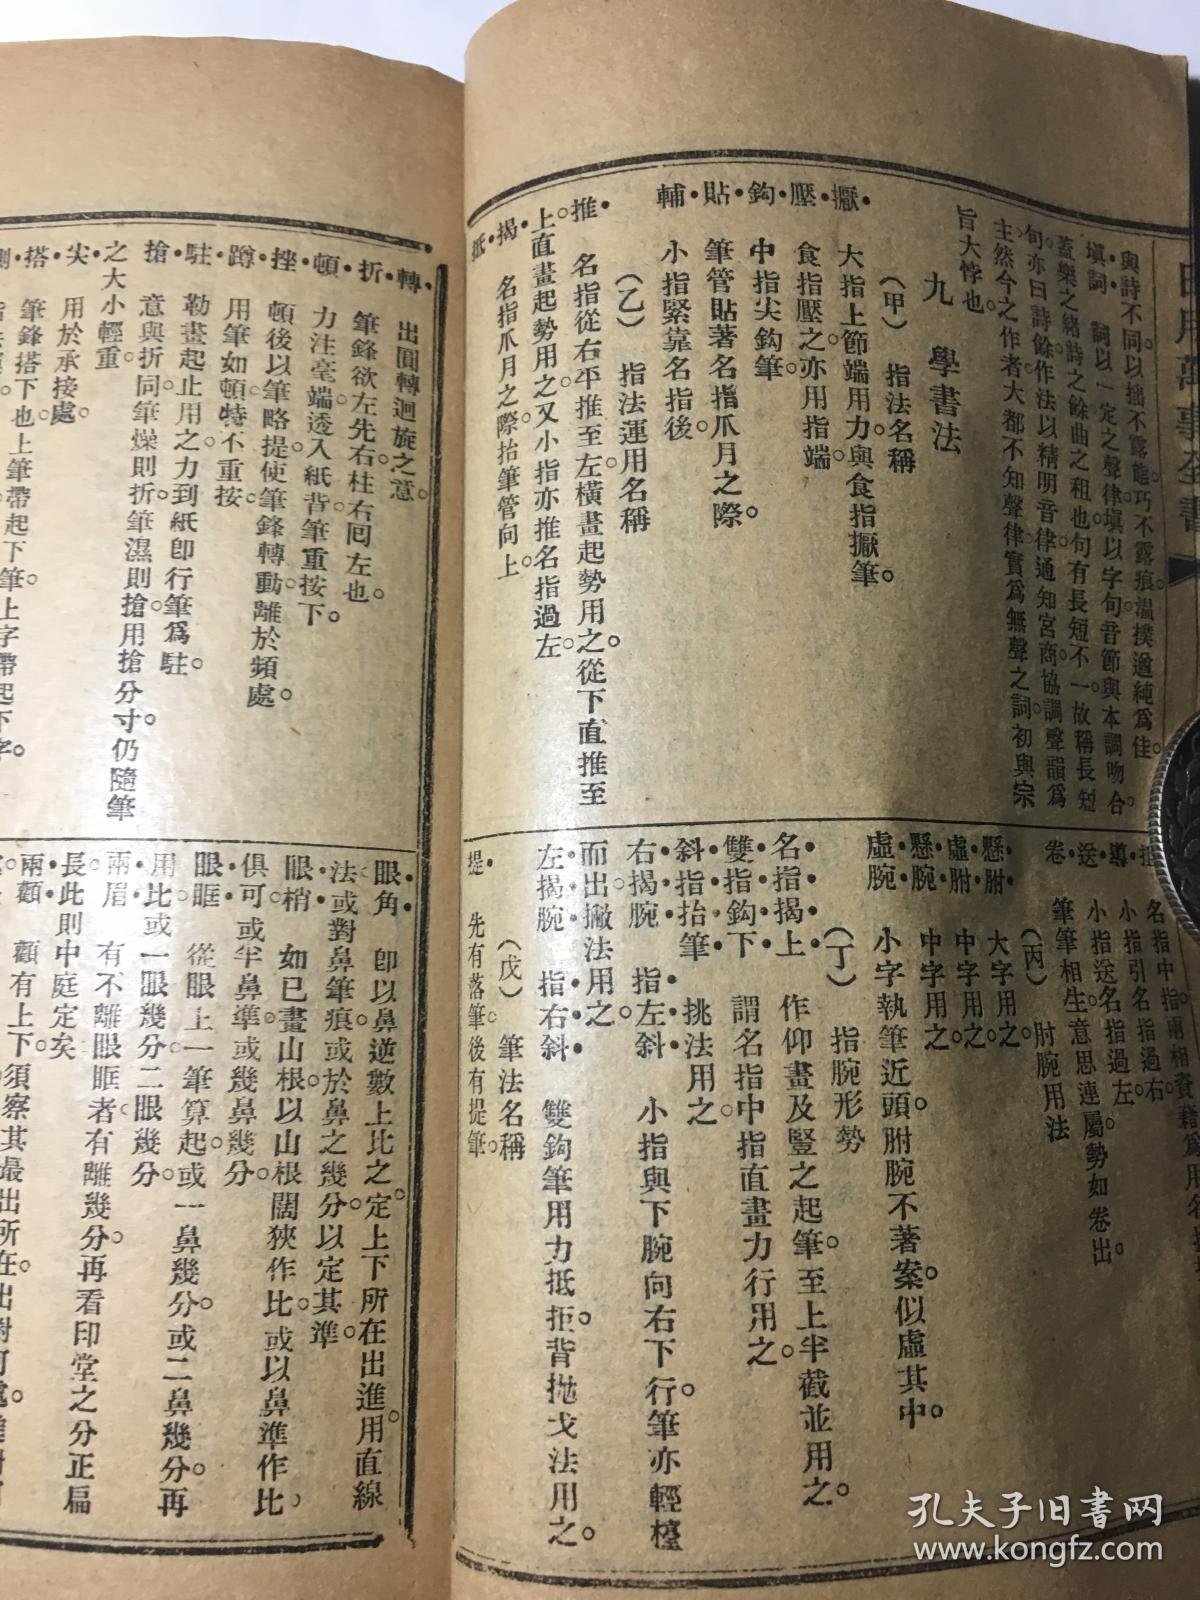 日用萬事全書
與詩不同。以拙不露態。巧不露痕。溫撲遒純爲佳。
塡詞　詞以一定之聲律塡以字句音節與本調吻合。
蓋樂之緒詩之餘曲之租也。句有長短不一。故稱長短
句。亦曰詩餘作法以精明音律。通知宮商。協調聲韻爲
主。然今之作者。大都不知聲律。實爲無聲之詞。初與宗
旨大悖也。
九　學書法
(甲)　指法名稱
擫　大指上節端用力。與食指擫筆
壓　食指壓之。亦用指端
鈎　中指尖鈎筆
貼　筆管貼著名指爪月之際。
輔　小指緊靠名指後
(乙)　指法運用名稱
推　名指從右平推至左。橫畫起勢用之。從下直推至
上。直畫起勢用之。又小指亦推名指過左。
揭　名指爪月之際。抬筆管向上。
抵
名指中指兩相資藉爲用
導　小指引名指過右。
送　小指送名指過左。
卷　筆筆相生。意思連屬。勢如卷出。
(丙)　肘腕用法
懸肘　大字用之。
虛肘　中字用之。
懸腕　中字用之。
虛腕　小字執筆近頭。肘腕不著案。似虛其中。
(丁)　指腕形勢
名指揭上　作仰畫及豎之起筆。至上半截並用之。
雙指鈎下　謂名指中指直畫力行用之。
斜指抬筆　挑法用之。
右揭腕　指左斜　小指與下腕向右下行。筆亦輕檯
而出。撇法用之。
左揭腕　指右斜　雙鈎筆用力抵拒。背拋戈法用之。
(戊)　筆法名稱
堤　先有落筆。後有提筆。
轉　出圓轉迴旋之意。
折　筆鋒欲左先右。柱右囘左也。
頓　力注毫端。透入紙背。筆重按下。
挫　頓後以筆略提。使筆鋒轉動。離於頻處。
蹲　用筆如頓。特不重按。
駐　勒畫起止用之。力到紙卽行筆爲駐。
搶　意與折同。筆燥則折。筆濕則搶。用搶分寸。仍隨筆
之大小輕重
尖　用於承接處。
搭　筆鋒搭下也。上筆帶起下筆。上字帶起下字。
側
眼角　卽以鼻逆數上比之。定上下所在。出進用直線
法。或對鼻筆痕。或於鼻之幾分。以定其準。
眼梢　如已畫山根。以山根闊狹作比。或以鼻準作比。
俱可。或半鼻準。或幾鼻幾分。
眼眶　從眼上一筆算起。或一鼻幾分。或二鼻幾分。再
用比或一眼幾分。二眼幾分。
兩眉　有不離眼眶者。有離幾分。再看印堂之分正扁
長。此則中庭定矣。
兩顴　顴有上下。須察其最出所在。出對何處。
孔夫子旧書网
www.kongfz.com